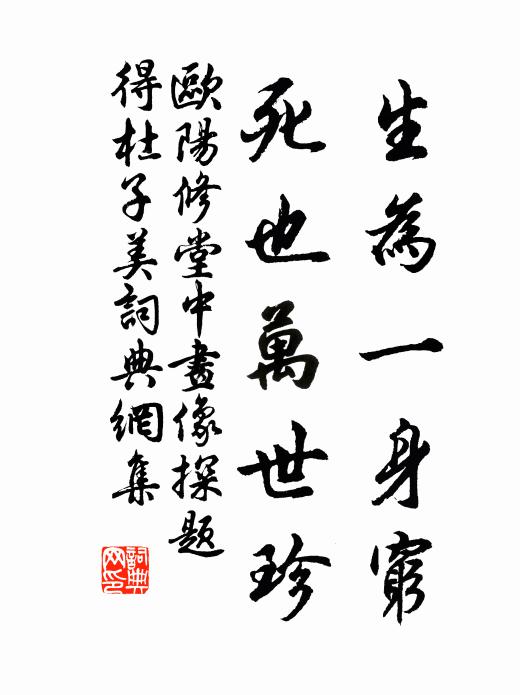 生為一身窮
死也萬世珍
歐陽修堂中畫像探題
得杜子美詞典網集
詞典
网印